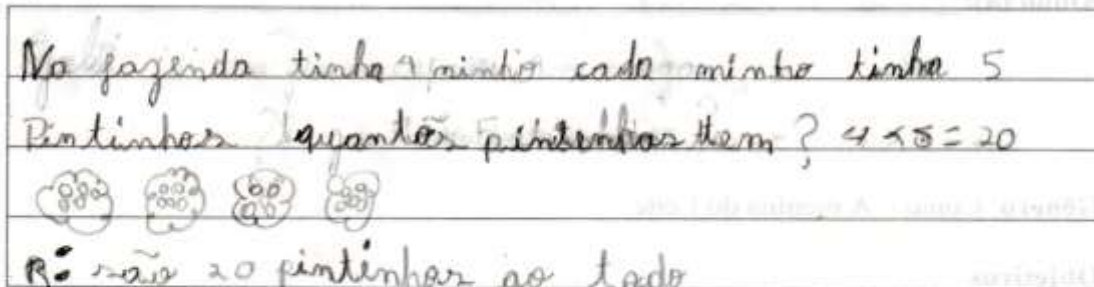 Na fazenda tinha 4 ninho cada ninho tinha 5
Pintinhos quantos pintinhos tem? 4 x 5 = 20
R: são 20 pintinhos ao todo